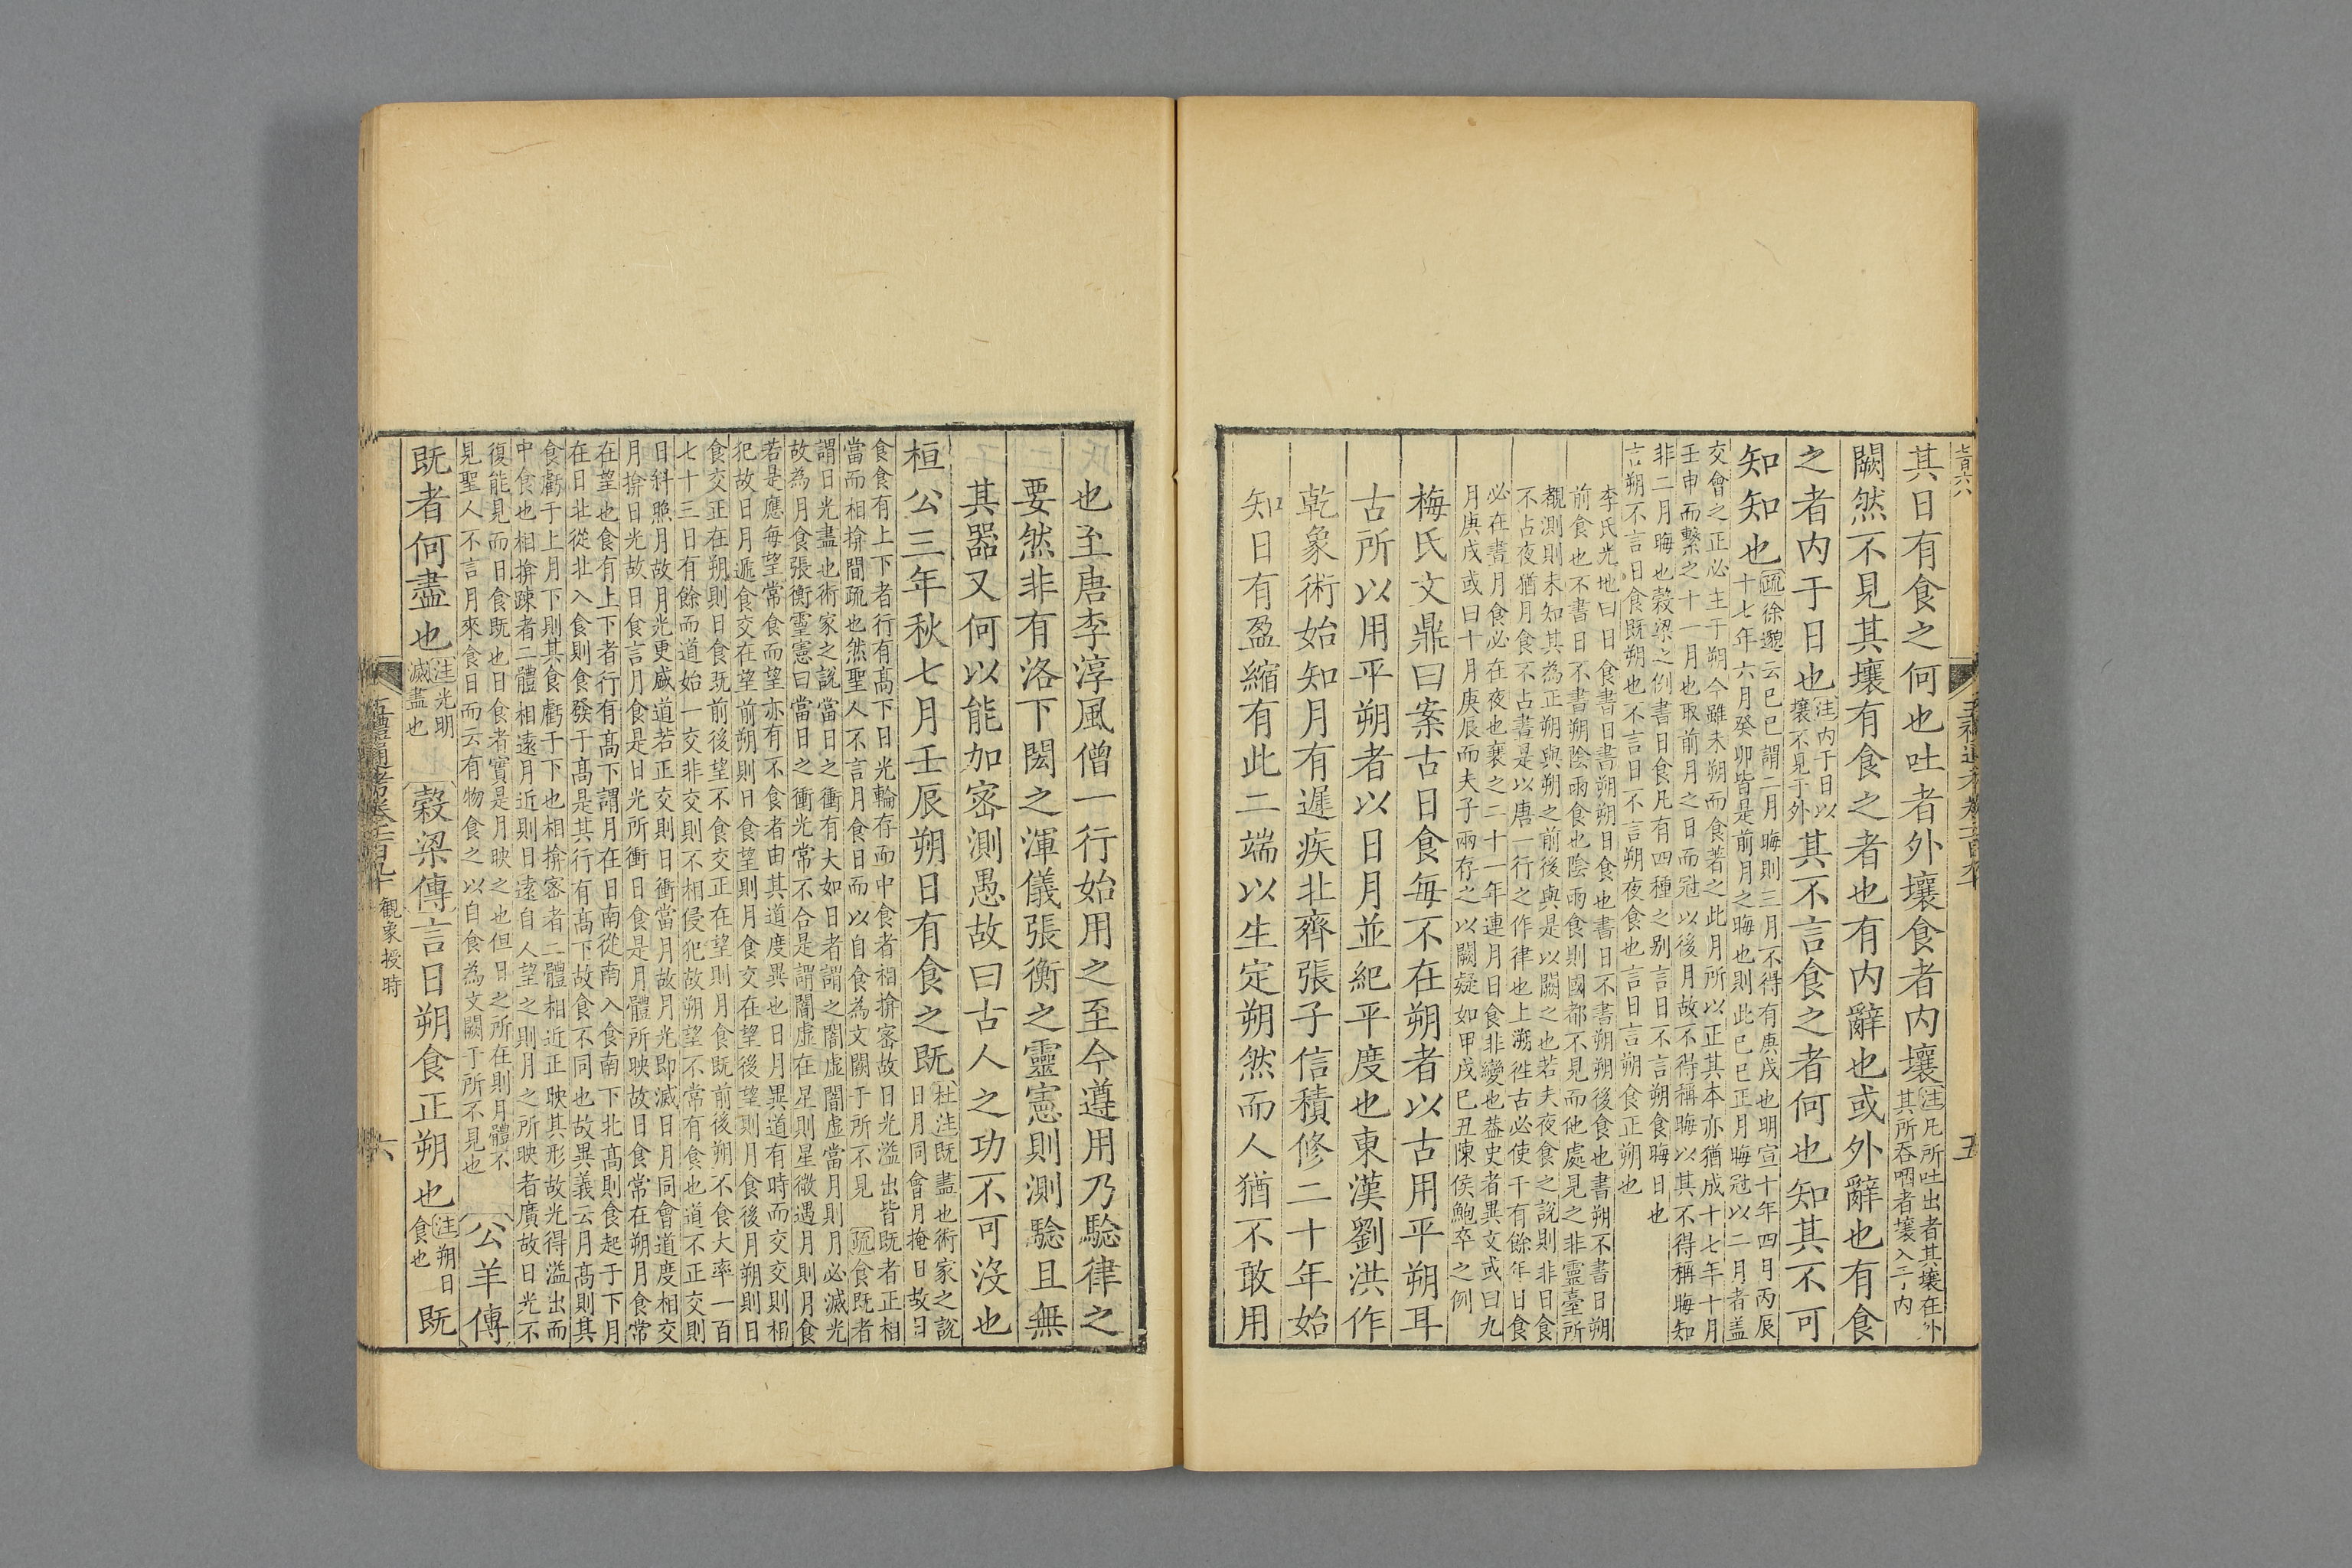 其日有食之何也吐者外壤食者内壤
注凡所吐出者其壤在外
其所吞咽者壤入于内
闕然不見其壤有食之者也有内辭也或外辭也有食
之者内于日也
注内于日以
壤不見于外
其不言食之者何也知其不可
知知也
疏徐邈云己巳謂二月晦則三月不得有庚戌也明宣十年四月丙辰
十七年六月癸卯皆是前月之晦也則此己巳正月晦冠以二月者蓋
交會之正必主于朔今雖未朔而食著之此月所以正其本亦猶成十七年十月
壬申而繫之十一月也取前月之日而冠以後月故不得稱晦以其不得稱晦知
非二月晦也穀梁之例書日食凡有四種之别言日不言朔食晦日也
言朔不言日食既朔也不言日不言朔夜食也言日言朔食正朔也
李氏光地曰日食書日書朔朔日食也書日不書朔朔後食也書朔不書日朔
前食也不書日不書朔陰雨食也陰雨食則國都不見而他處見之非靈臺所
覩測則未知其為正朔與朔之前後與是以闕之也若夫夜食之說則非日食
不占夜猶月食不占晝是以唐一行之作律也上溯徃古必使千有餘年日食
必在晝月食必在夜也襄之二十一年連月日食非變也葢史者異文或曰九
月庚戌或曰十月庚辰而夫子兩存之以闕疑如甲戌己丑陳侯鮑卒之例
梅氏文鼎曰案古日食每不在朔者以古用平朔耳
古所以用平朔者以日月並紀平度也東漢劉洪作
乾象術始知月有遲疾北齊張子信積修二十年始
知日有盈縮有此二端以生定朔然而人猶不敢用
五
也至唐李淳風僧一行始用之至今遵用乃驗律之
要然非有洛下閎之渾儀張衡之靈憲則測驗且無
其器又何以能加密測愚故曰古人之功不可没也
桓公三年秋七月壬辰朔日有食之既
杜注既盡也術家之說
日月同會月掩日故日
食食有上下者行有高下日光輪存而中食者相揜密故日光溢出皆既者正相
當而相揜間疏也然聖人不言月食日而以自食為文闕于所不見 疏食既者
謂日光盡也術家之說當日之衝有大如日者謂之闇虛闇虛當月則月必滅光
故為月食張衡靈憲曰當日之衝光常不合是謂闇虛在星則星微遇月則月食
若是應每望常食而望亦有不食者由其道度異也日月異道有時而交交則相
犯故日月遞食交在望前朔則日食望則月食交在望後望則月食後月朔則日
食交正在朔則日食既前後望不食交正在望則月食既前後朔不食大率一百
七十三日有餘而道始一交非交則不相侵犯故朔望不常有食也道不正交則
日斜照月故月光更盛道若正交則日衝當月故月光即滅日月同會道度相交
月揜日光故日食言月食是日光所衝日食是月體所映故日食常在朔月食常
在望也食有上下者行有高下謂月在日南從南入食南下北高則食起于下月
在日北從北入食則食發于高是其行有高下故食不同也故異義云月高則其
食虧于上月下則其食虧于下也相揜密者二體相近正映其形故光得溢出而
中食也相揜疎者二體相遠月近則日遠自人望之則月之所映者廣故日光不
復能見而日食既也日食者實是月映之也但日之所在則月體不
見聖人不言月來食日而云有物食之以自食為文闕于所不見也
公羊傳
既者何盡也
注光明
滅盡也
穀梁傳言日朔食正朔也
注朔日
食也
既
五禮通考卷一百九十 觀象授時
六